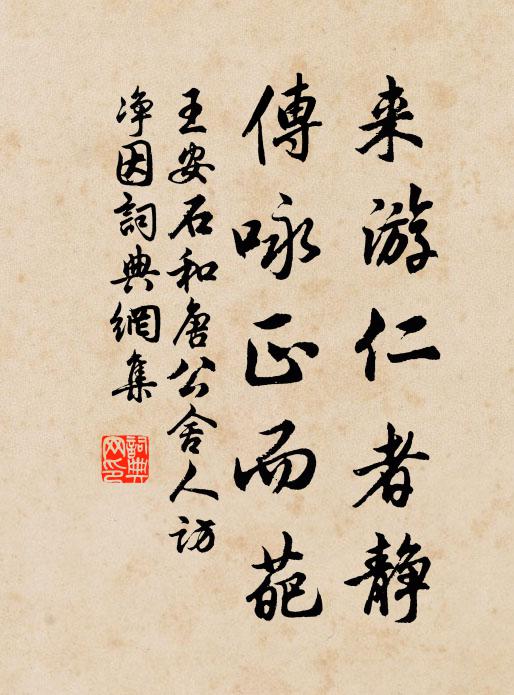 来游仁者静
傳咏正而葩
王安石和唐公舍人訪
净因詞典網集
詞典網印